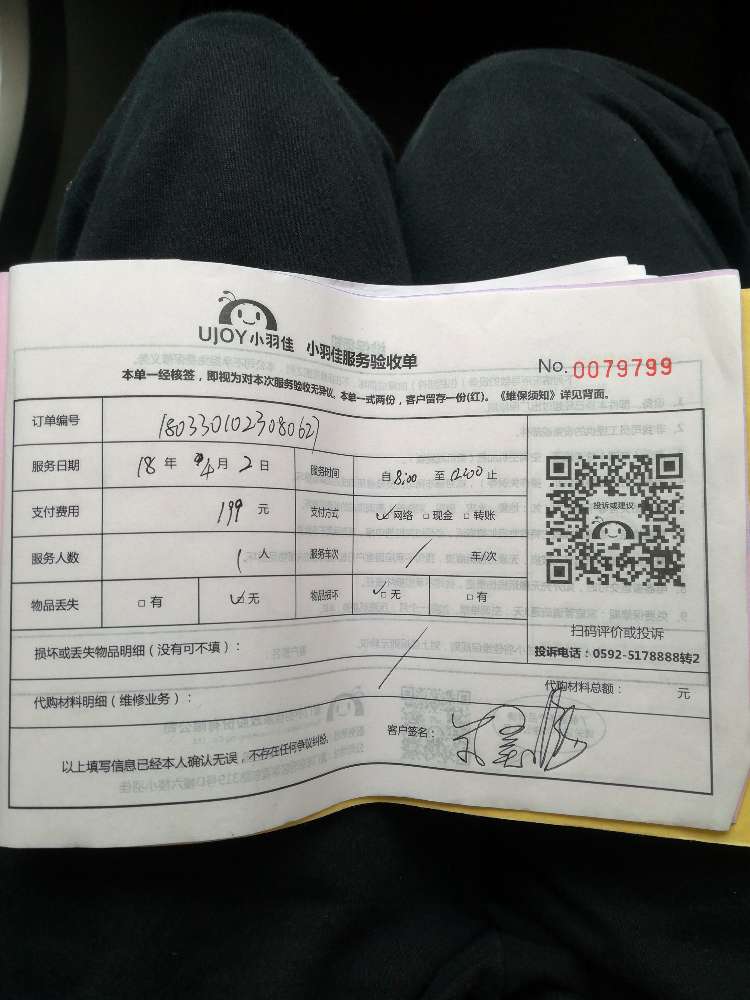 UJOY小羽佳 小羽佳服务验收单
No. 0079799
本单一经核签，即视为对本次服务验收无异议。本单一式两份，客户留存一份(红)。《维保须知》详见背面。
订单编号 180330102308062
服务日期 18 年 4 月 2 日 服务时间 自 8:00 至 12:00 止
支付费用 199 元 支付方式 ☑网络 □现金 □转账
投诉或建议
服务人数 1 人 服务车次 / 车/次
物品丢失 □有 ☑无 物品损坏 ☑无 □有
扫码评价或投诉
投诉电话：0592-5178888转2
损坏或丢失物品明细（没有可不填）：
代购材料明细（维修业务）： 代购材料总额： 元
以上填写信息已经本人确认无误，不存在任何争议纠纷。 客户签名：